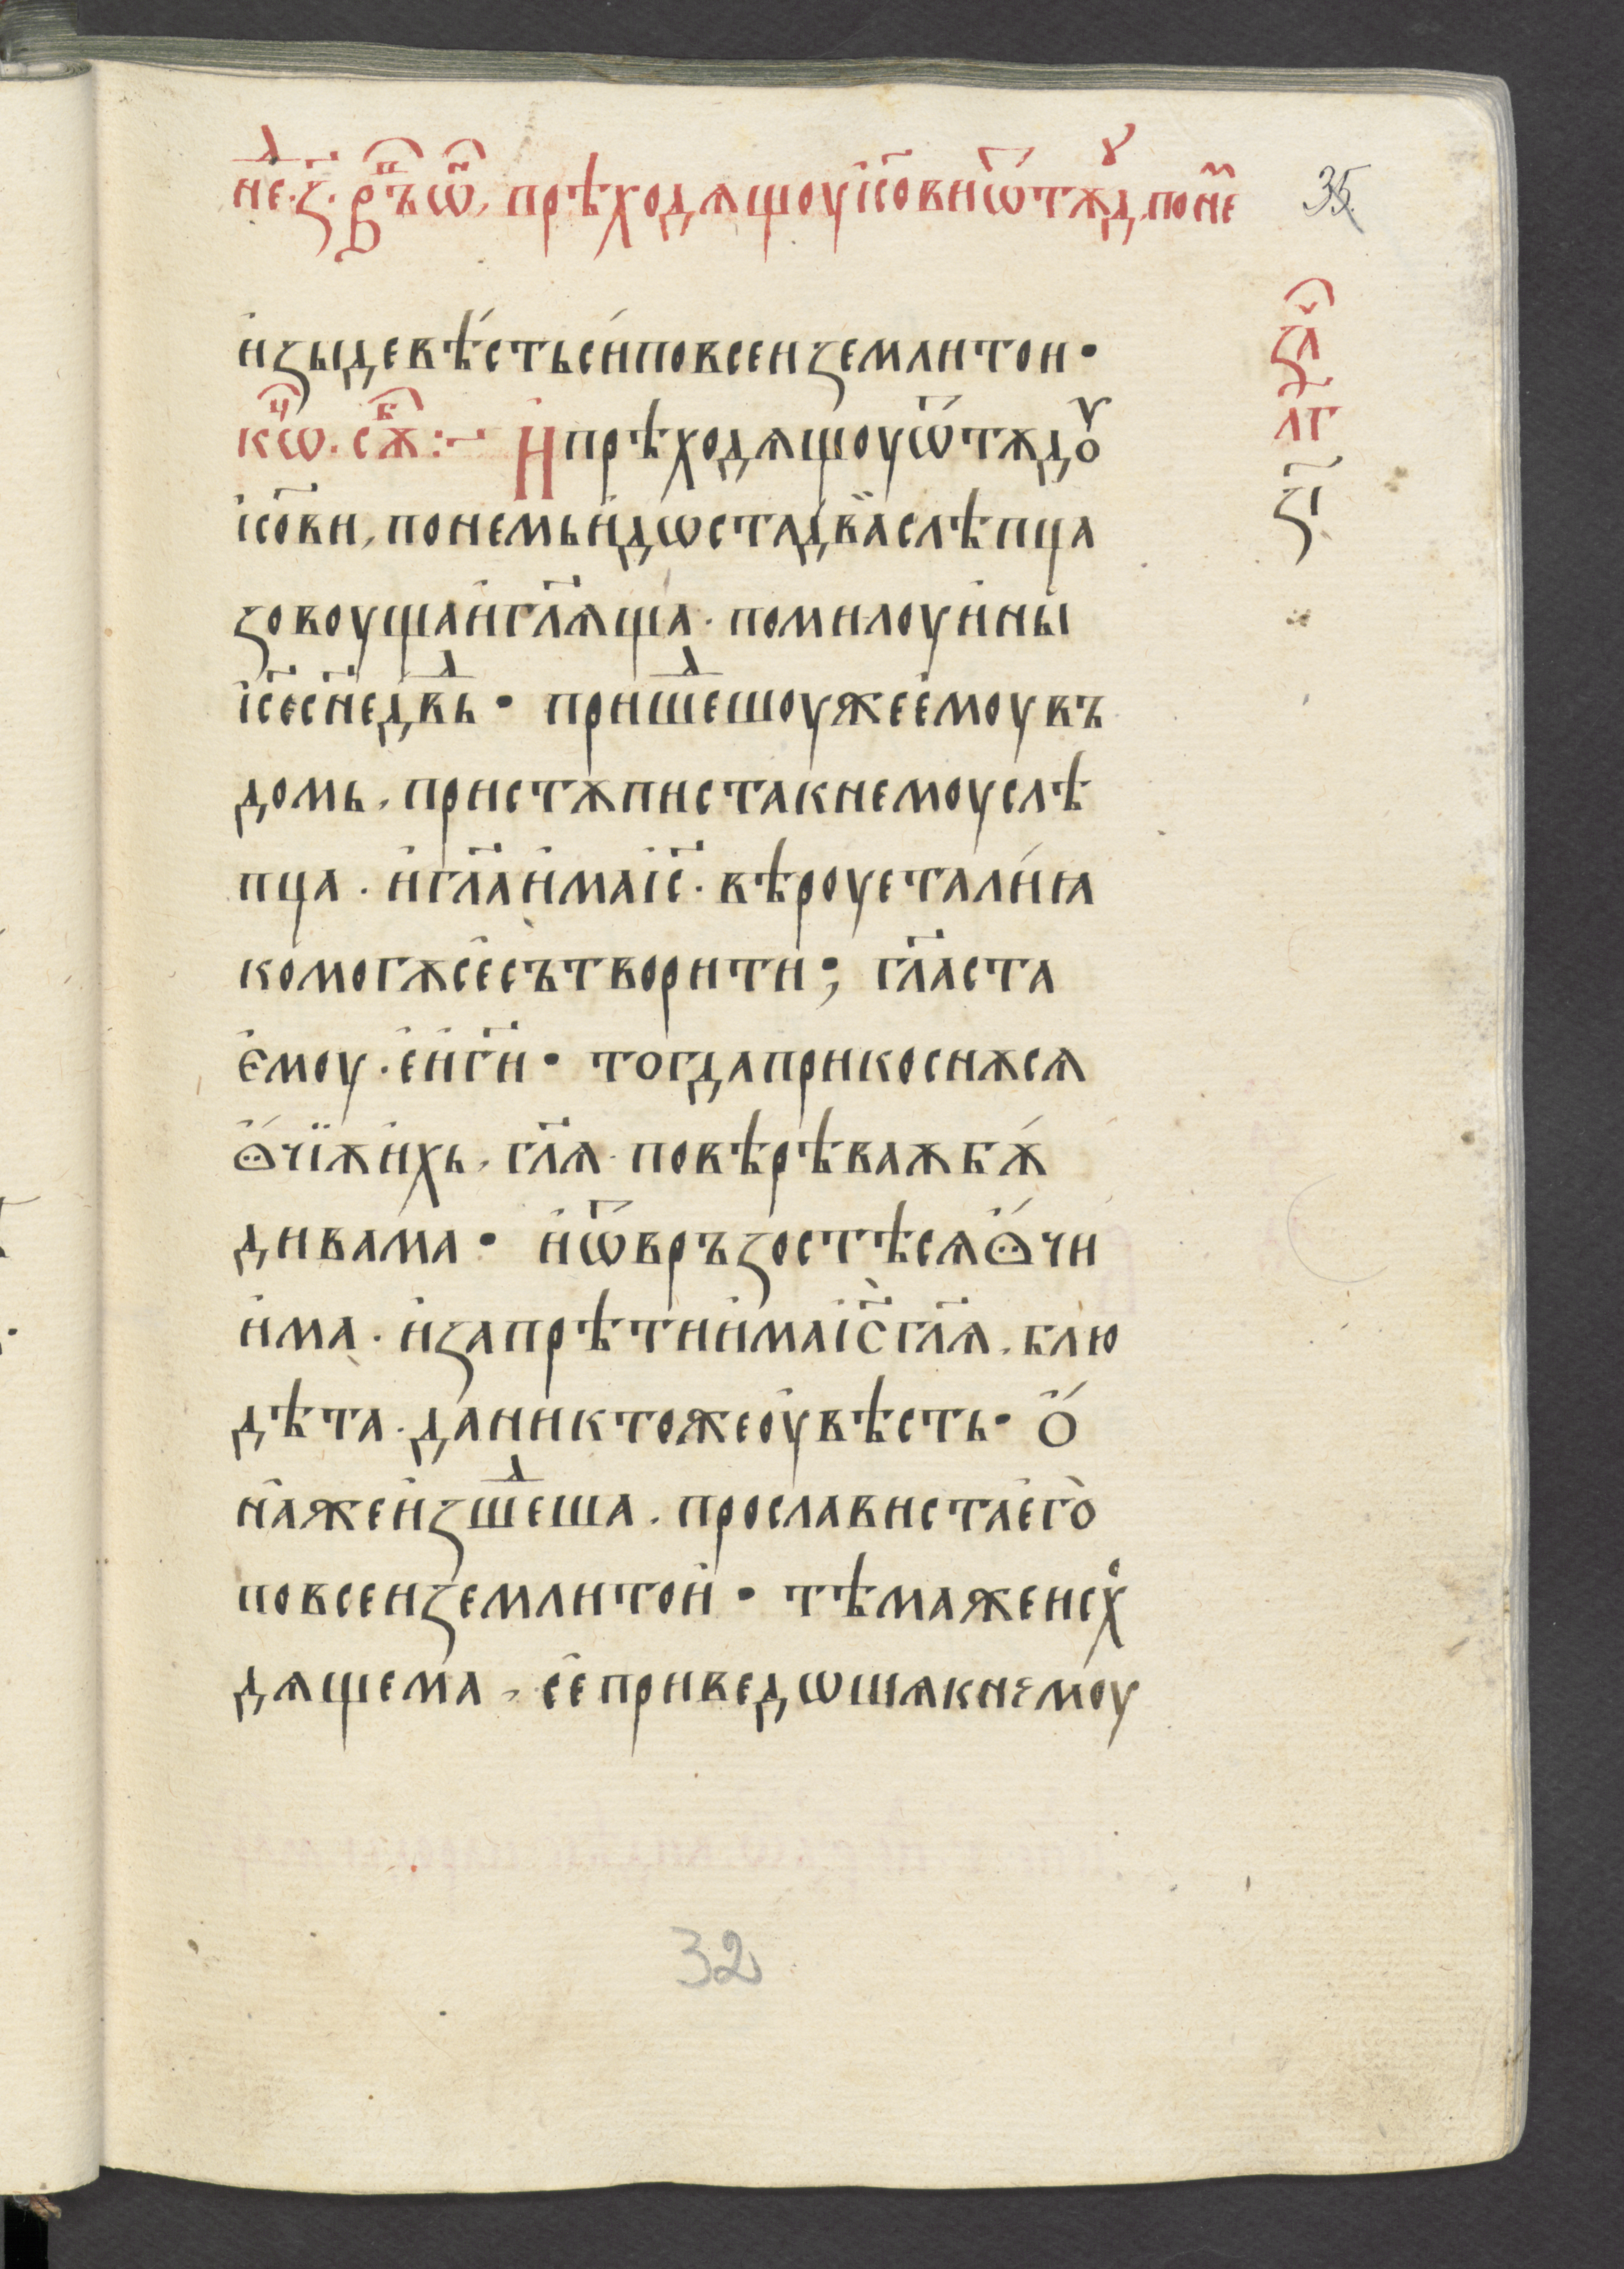 не҇ⷣ · з҃ · в҆ъⷬ҇ѡⷩ҇ · прѣходѧщоу і҆с҃ови ѿтѫдꙋ, по не҇
35
и҆зыде вѣ́сть си́ по всеи земли тои ·
кѡⷰ҇ · сѫⷡ҇ :~ И҆ прѣходѧщоу ѿтѫдоу
і҆с҃ови, по немь и҆дѡста два̀ слѣпца
зовоуща и҆ гл҃ѧща · помилоуи ны
і҆с҃е сн҃е дв҃ⷣь · пришеⷣшоу же е҆моу въ
домь, пристѫписта к немоу слѣ
пца · и҆ гл҃а и҆ма і҆с҃ · вѣроуета ли́ ꙗ
ко могѫ се̑ сътворити ; гл҃аста
е҆моу · е҆и г҃и · тогда прикоснѫ сѧ
ꙮ҆́чїѫ и҆хь, гл҃ѧ · по вѣрѣ ваю бѫ́
ди вама · и҆ ѿвръзостѣ сѧ ꙮ҆́чи
и҆ма · и҆ запрѣти и҆ма і҆с҃ гл҃ѧ, блю
дѣта · да никтоже оу҆вѣсть · о҆́
на́ же и҆зшеⷣша, прослависта е҆го̀
по всеи земли тои҆ · тѣма же исхⷪ
дѧщема, се̑ приведѡшѧ к немоу
заⷱ҇
л҃г
з҃і
32